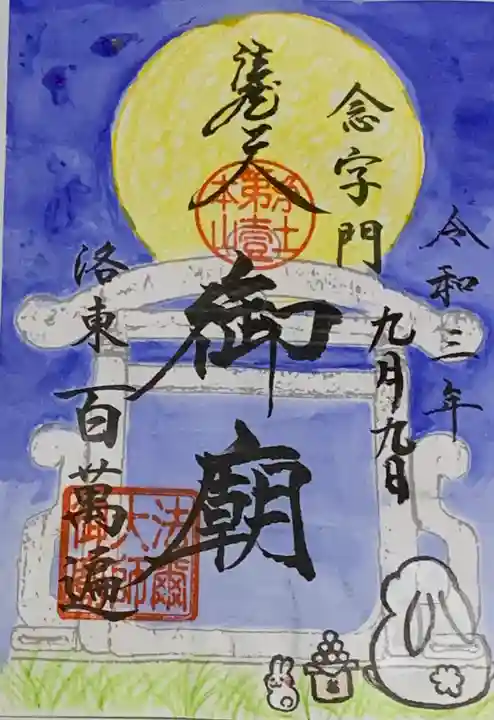 令和三年
九月九日
念字門
浄土
第壹
本山
御廟
法爾
大師
洛東
百萬遍